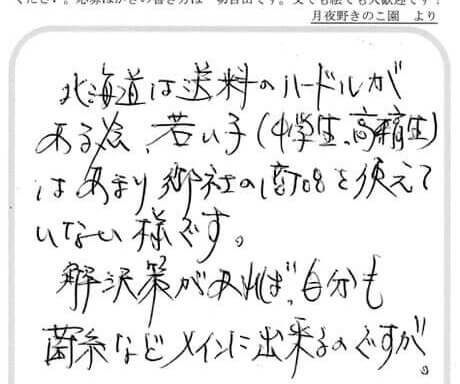 ください。応募はがきの書き方は一切自由です。文でも絵でも大歓迎です!
月夜野きのこ園 より
北海道は送料のハードルが
ある為、若い子(中学生、高校生)
はあまり御社の商品を使えて
いない様です。
解決策があれば、自分も
菌糸などメインに出来るのですが。